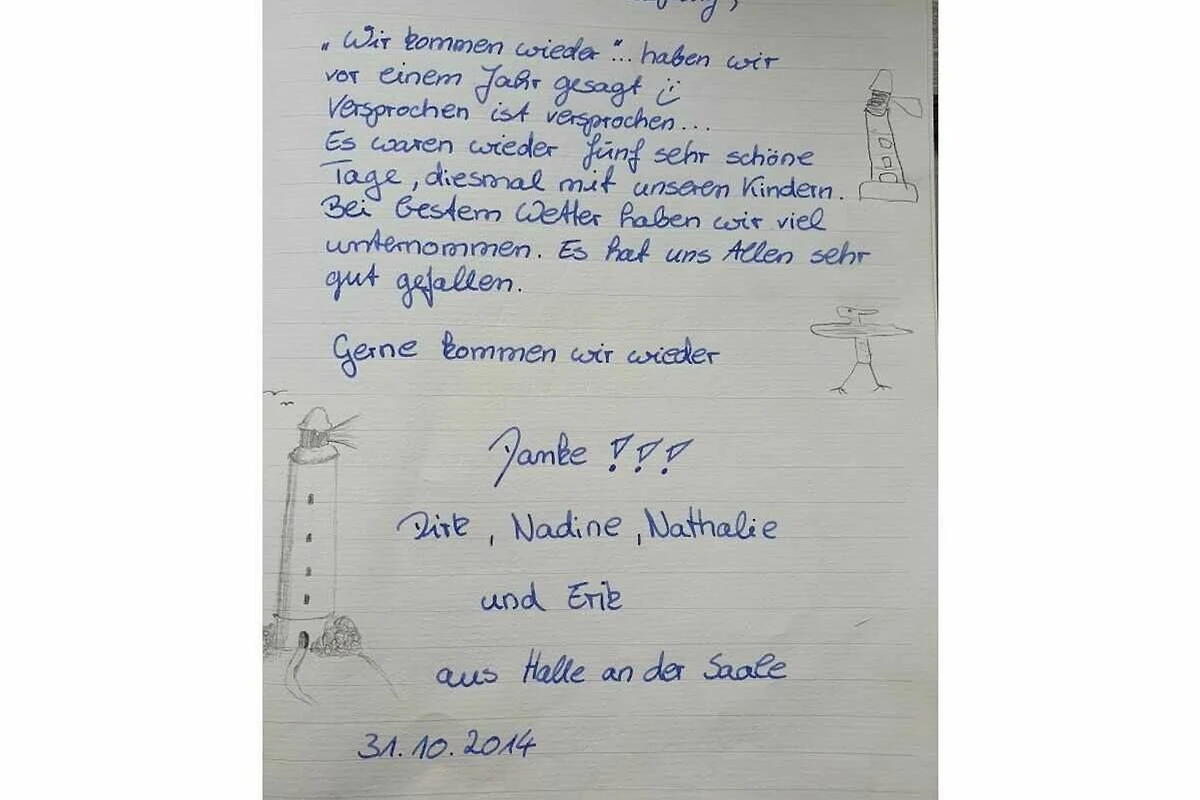 „Wir kommen wieder"... haben wir
vor einem Jahr gesagt :)
Versprochen ist versprochen...
Es waren wieder fünf sehr schöne
Tage, diesmal mit unseren Kindern.
Bei bestem Wetter haben wir viel
unternommen. Es hat uns Allen sehr
gut gefallen.
Gerne kommen wir wieder
Danke !!!
Dirk, Nadine, Nathalie
und Erik
aus Halle an der Saale
31.10.2014